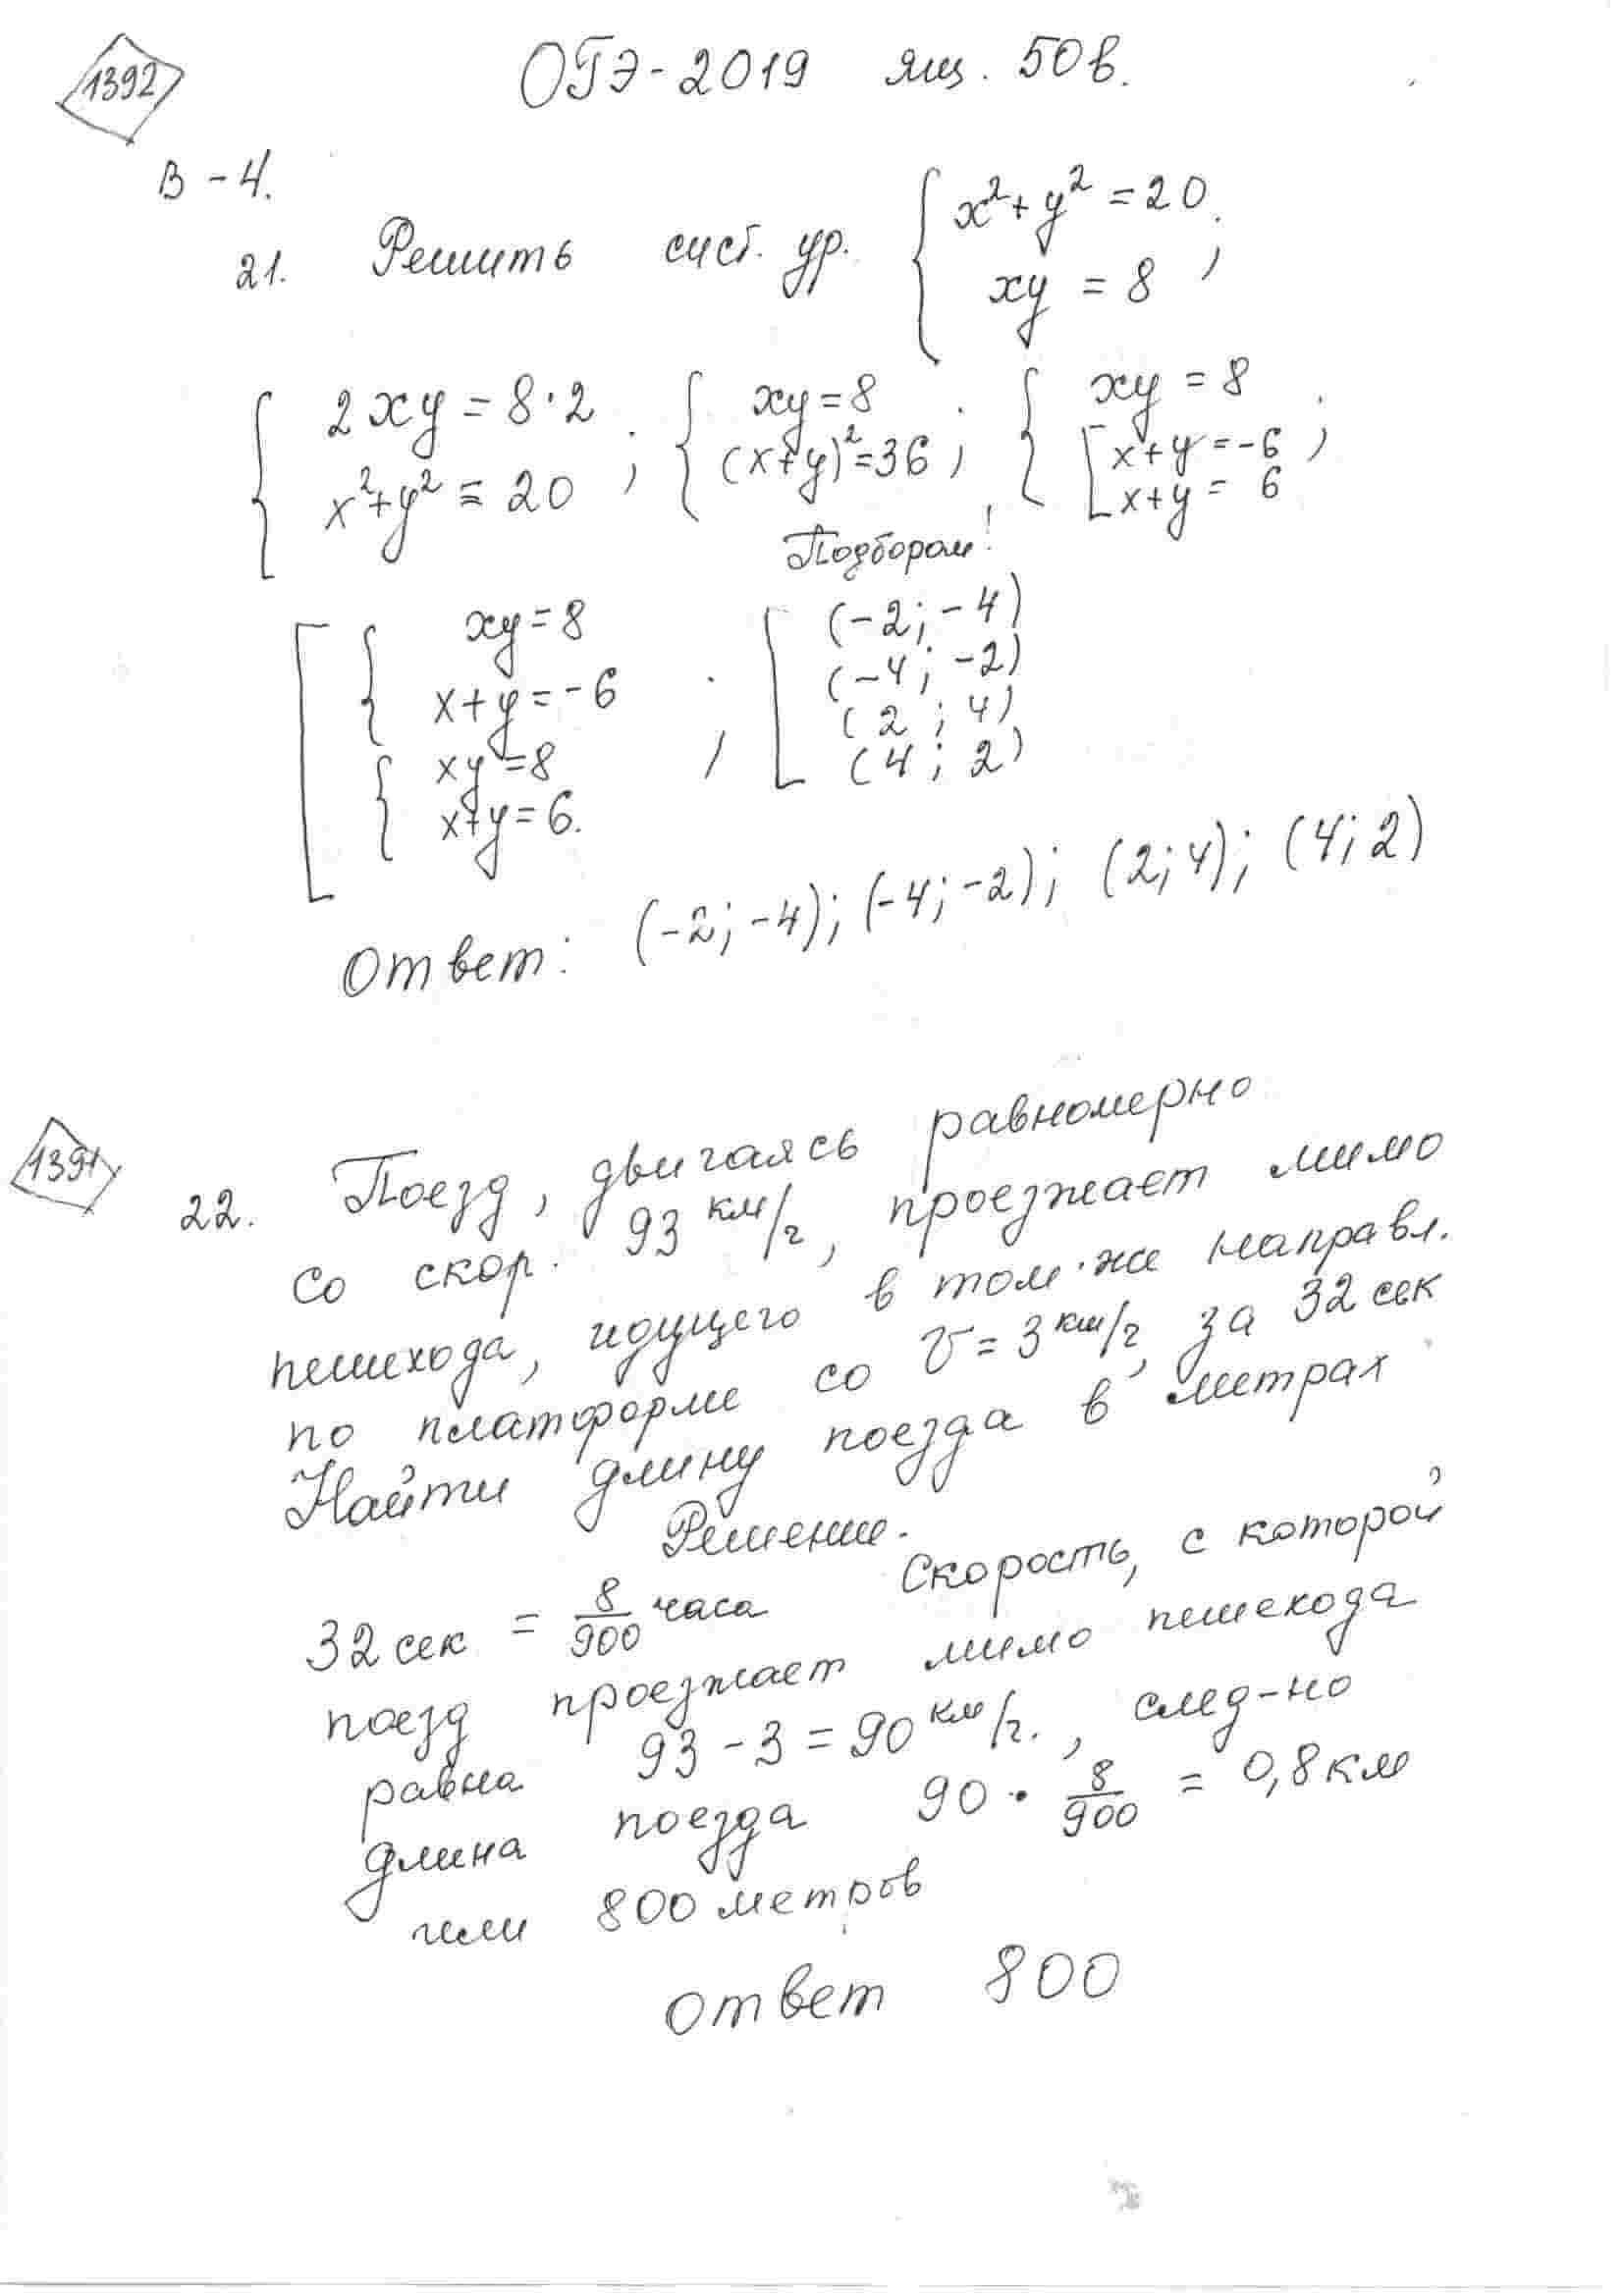 1392
ОГЭ-2019 ящ. 50в.
В-4.
21. Решить сист. ур. { x²+y²=20
xy = 8 ;
{ 2xy = 8·2
x²+y² = 20 ; { xy=8
(x+y)²=36 ; { xy = 8
[ x+y=-6
x+y= 6 ;
Подбором!
[ { xy=8
x+y=-6
{ xy=8
x+y=6. ; [ (-2; -4)
(-4; -2)
(2; 4)
(4; 2)
Ответ: (-2; -4); (-4; -2); (2; 4); (4; 2)
1391
22. Поезд, двигаясь равномерно
со скор. 93 км/ч, проезжает мимо
пешехода, идущего в том же направл.
по платформе со v = 3 км/ч, за 32 сек
Найти длину поезда в метрах
Решение.
32 сек = 8/900 часа Скорость, с которой
поезд проезжает мимо пешехода
равна 93 - 3 = 90 км/ч., след-но
длина поезда 90 · 8/900 = 0,8 км
или 800 метров
ответ 800